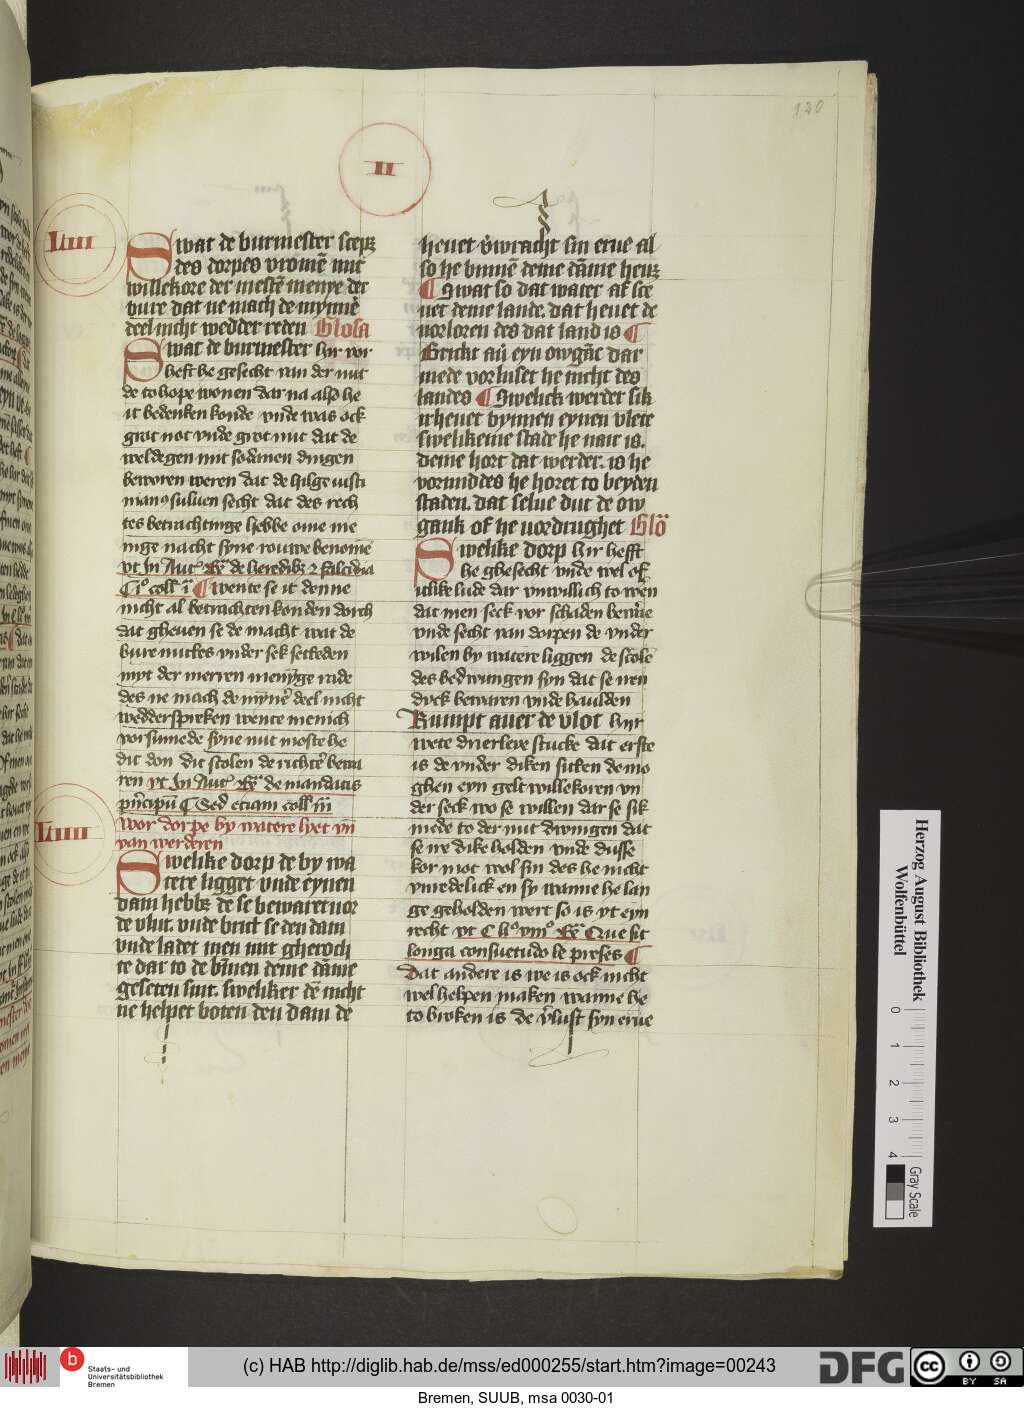 120
II
Liiii
Swat de burmester scepꝫ
des dorpes vromē mit
willekore der mestē menye der
bure dat ne mach de mynnē
deel nicht wedder reden Glosa
Swat de burmester hir vor
heft he gesecht van der nut
de to hope wonen dar na also he
it bedenken konde vnde was ock
grot not vnde grot nut dat de
weldegen mit sodānen dingen
beworen weren dat de hilge iusti
manꝰ suluen secht dat des rech
tes betrachtinge hebbe ome me
nige nacht syne rouwe benomē
vt In Autˢ de heredibꝫ ⁊ falcidia
coll̄ ī ¶ wente se it denne
nicht al betrachten konden dorch
dat gheuen se de macht wat de
bure nuttes vnder sek setteden
myt der merren menyge rade
des ne mach de mynē deel nicht
weddersprken wente menich
vorsumede syne nut moste he
dit don dit scolen de richtē betra
ren vt In Autˢ de mandatis
pn̄cipū ¶ Sed etiam coll̄
Liiii
Wor dorpe by watere lyet vn̄
van werderen
Swelike dorp de by wa
tere ligget vnde eynen
dam hebbꝫ de se bewaret vor
de vlut. vnde brict se den dam
vnde ladet men mit gheroch
te dar to de bīnen deme dāme
geseten sint. sweliker dē nicht
ne helpet boten den dam de
heuet v̄wracht sin erue al
so he binnē deme dāme heuꝫ
¶ Swat so dat water af sce
uet deme lande. dat heuet de
vorloren des dat land is ¶
Brickt au̅ eyn owgāc dar
mede vorluset he nicht des
landes ¶ Swelick werder sik
irheuet bynnen eynen vlete
swelikeme stade he naꝛ is.
deme hort dat werder. is he
vormiddes he horet to beyden
staden. dat selue dut de ow
gank of he vordrughet Glō
Swelike dorp hir hefft
he ghesecht vnde wel of
itlike lude dar vnwillich to wēn
dat men seck vor schaden
vnde secht van dorpen de vnder
wilen by watere liggen de scolē
des bedwungen syn dat se nen
dyck bewaren vnde haulden
Kumpt auer de vlot hyr
wete drierleye stucke dat erste
is de vnder diken sitten de mo
ghen eyn gelt willekoren vn
der seck wo se willen dar se sik
mede to der nut dwingen dat
se ne dike holden vnde dusse
kor mot wol sin des he nicht
vnredelick en sy wanne he lan
ge geholden wert so is yt eyn
recht vt C Que sit
longa consuetudo le preses ¶
Dat andere is we is ock nicht
wel helpen maken wanne he
to broken is de v̄lust syn erue
Herzog August Bibliothek
Wolfenbüttel
0 1 2 3 4
Gray Scale
b Staats- und
Universitätsbibliothek
Bremen
(c) HAB http://diglib.hab.de/mss/ed000255/start.htm?image=00243
DFG
cc BY SA
Bremen, SUUB, msa 0030-01